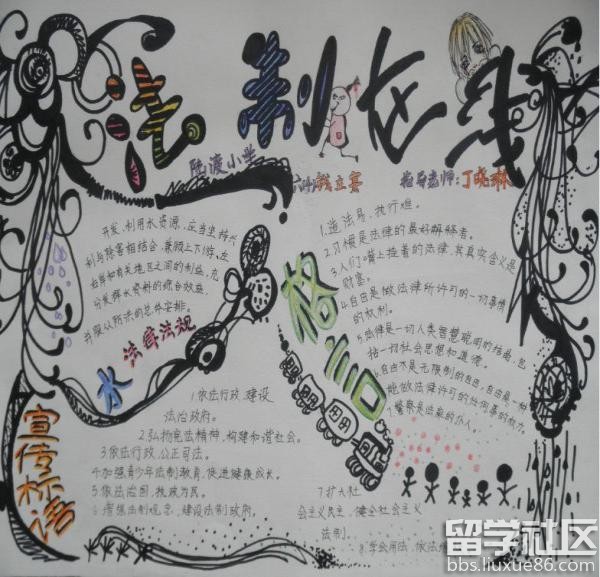 法制在线
陆渡小学
六(4)钱立宴
指导老师:丁晓琳
开发、利用水资源,应当坚持兴
利与除害相结合,兼顾上下游、左
右岸和有关地区之间的利益,充
分发挥水资源的综合效益,
并服从防洪的总体安排。
水法律法规
格言
1.造法易,执行难。
2.习惯是法律的最好解释者。
3.人们嘴上挂着的法律,其真实含义是
财富。
4.自由是做法律所许可的一切事情
的权利。
5.法律是一切人类智慧聪明的结晶,包
括一切社会思想和道德。
6.自由不是无限制的自由,自由是一种
能做法律许可的任何事的权力。
7.警察是法律的仆人。
宣传标语
1.依法行政,建设
法治政府。
2.弘扬宪法精神,构建和谐社会。
3.依法行政,公正司法。
4.加强青少年法制教育,促进健康成长。
5.依法治国,执政为民。
6.增强法制观念,建设法制政府。
7.扩大社
会主义民主,健全社会主义
法制。
8.学会用法,依法
留学社区
bbs.liuxue86.com